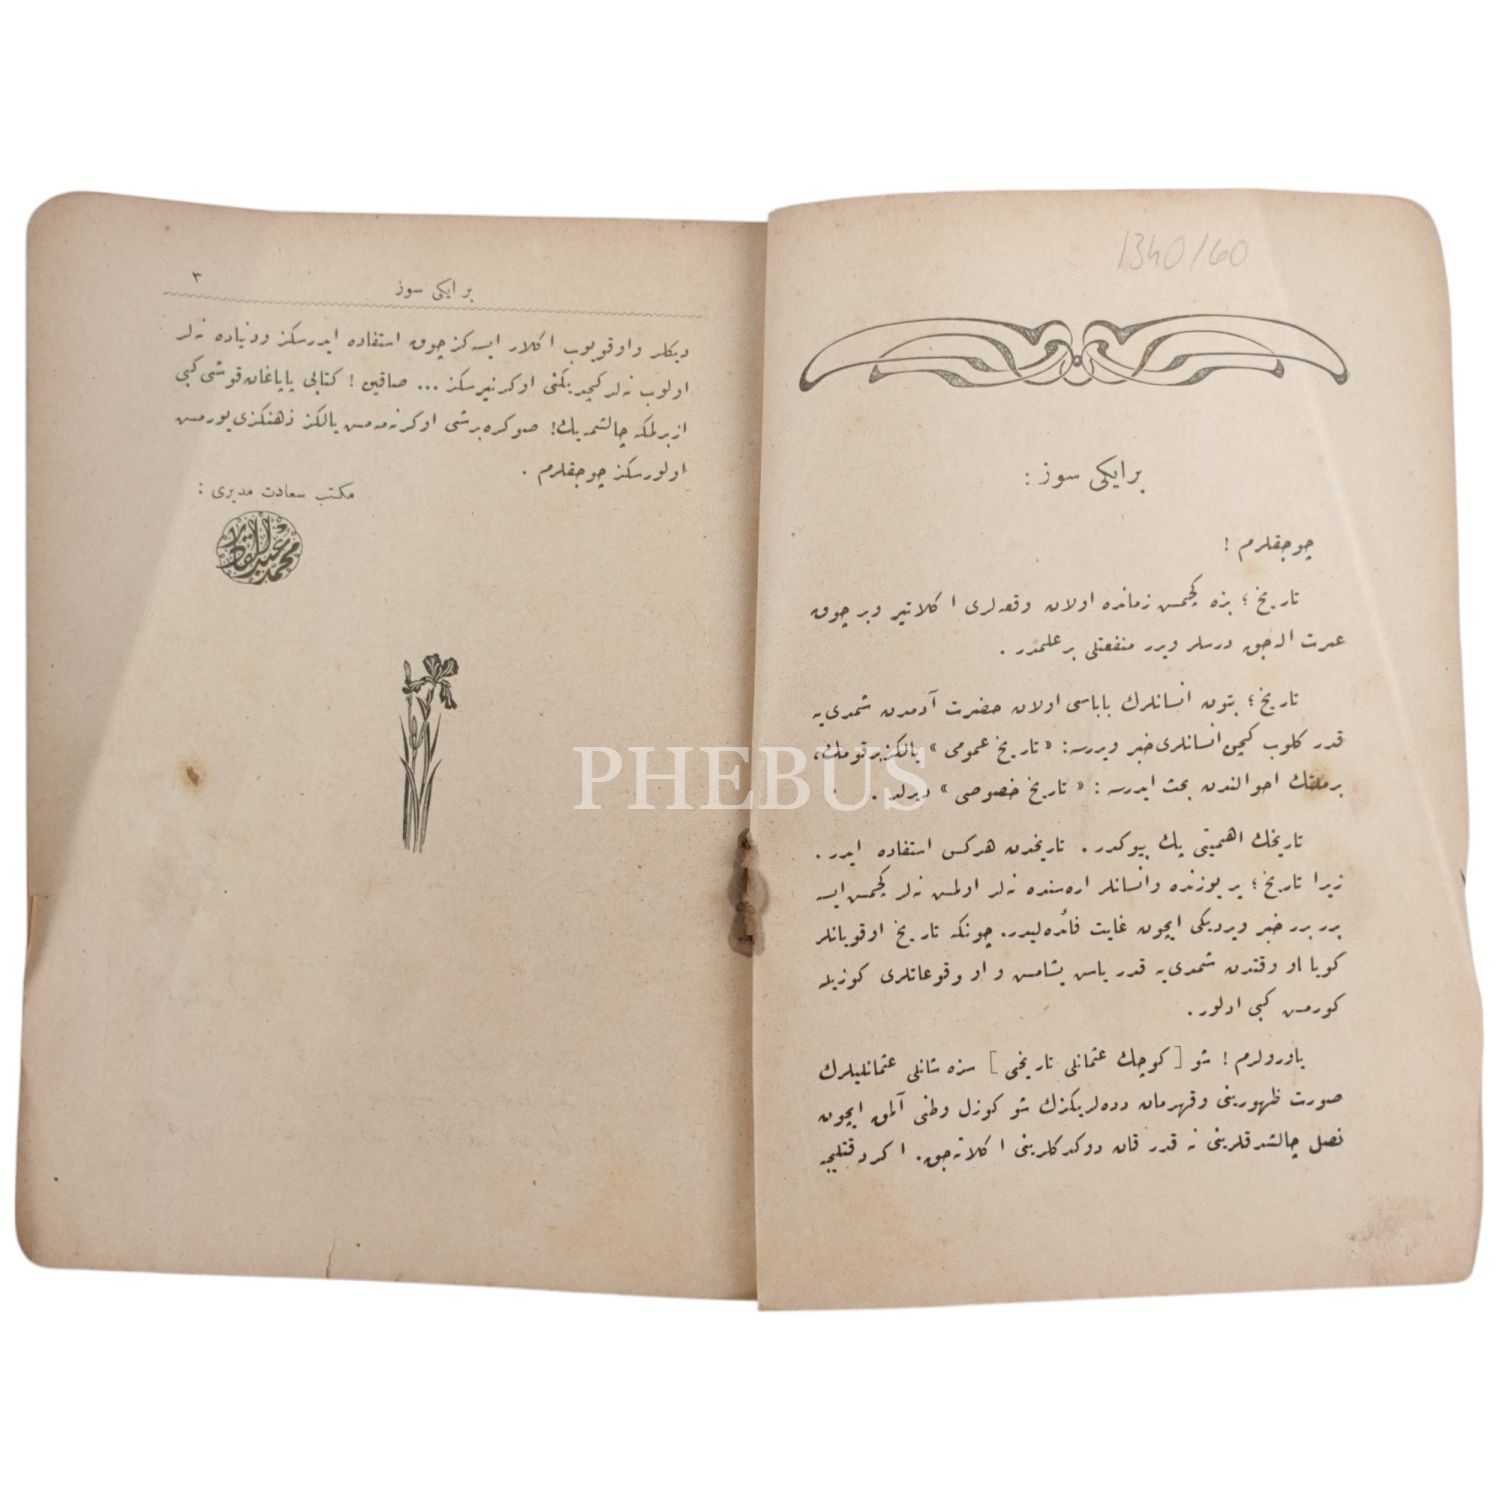 1340/60
بر ایكی سوز :
چوجقلرم !
تاریخ ؛ بزه كچمش زمانده اولان وقعه‌لری اكلاتیر وبر چوق
عبرت اله‌جق درسلر ویرر منفعتلی بر علمدر .
تاریخ ؛ بتون انسانلرك باباسی اولان حضرت آدمدن شمدی‌یه
قدر كلوب كچن انسانلری خبر ویررسه : « تاریخ عمومی » یالكز بر قومك،
بر ملتك احوالندن بحث ایدرسه : « تاریخ خصوصی » دیرلر .
تاریخك اهمیتی پك بیوكدر . تاریخدن هركس استفاده ایدر .
زیرا تاریخ ؛ یر یوزنده وانسانلر اره‌سنده نه‌لر اولمش نه‌لر كچمش ایسه
برر برر خبر ویردیكی ایچون غایت فائده‌لیدر. چونكه تاریخ اوقویانلر
كویا او وقتدن شمدی‌یه قدر یاش یشامش و او وقوعاتلری كوزیله
كورمش كبی اولور .
یاورولرم ! شو [ كوچك عثمانلی تاریخی ] سزه شانلی عثمانلیلرك
صورت ظهورینی وقهرمان دده‌لریكزك شو كوزل وطنی آلمق ایچون
نصل چالشدقلرینی نه قدر قان دوكدكلرینی اكلاته‌جق. اكر دقتلیجه
بر ایكی سوز
۳
دیكلر واوقویوب اكلار ایسه‌كز چوق استفاده ایدرسكز ودنیاده نه‌لر
اولوب نه‌لر كچدیكنی اوكرنیرسكز ... صاقین ! كتابی پاپاغان قوشی كبی
ازبرلمكه چالشمه‌یك! صوكره برشی اوكرنه‌مه‌مش یالكز ذهنكزی یورمش
اولورسكز چوجقلرم .
مكتب سعادت مدیری :
محمد عبدالقادر
PHEBUS